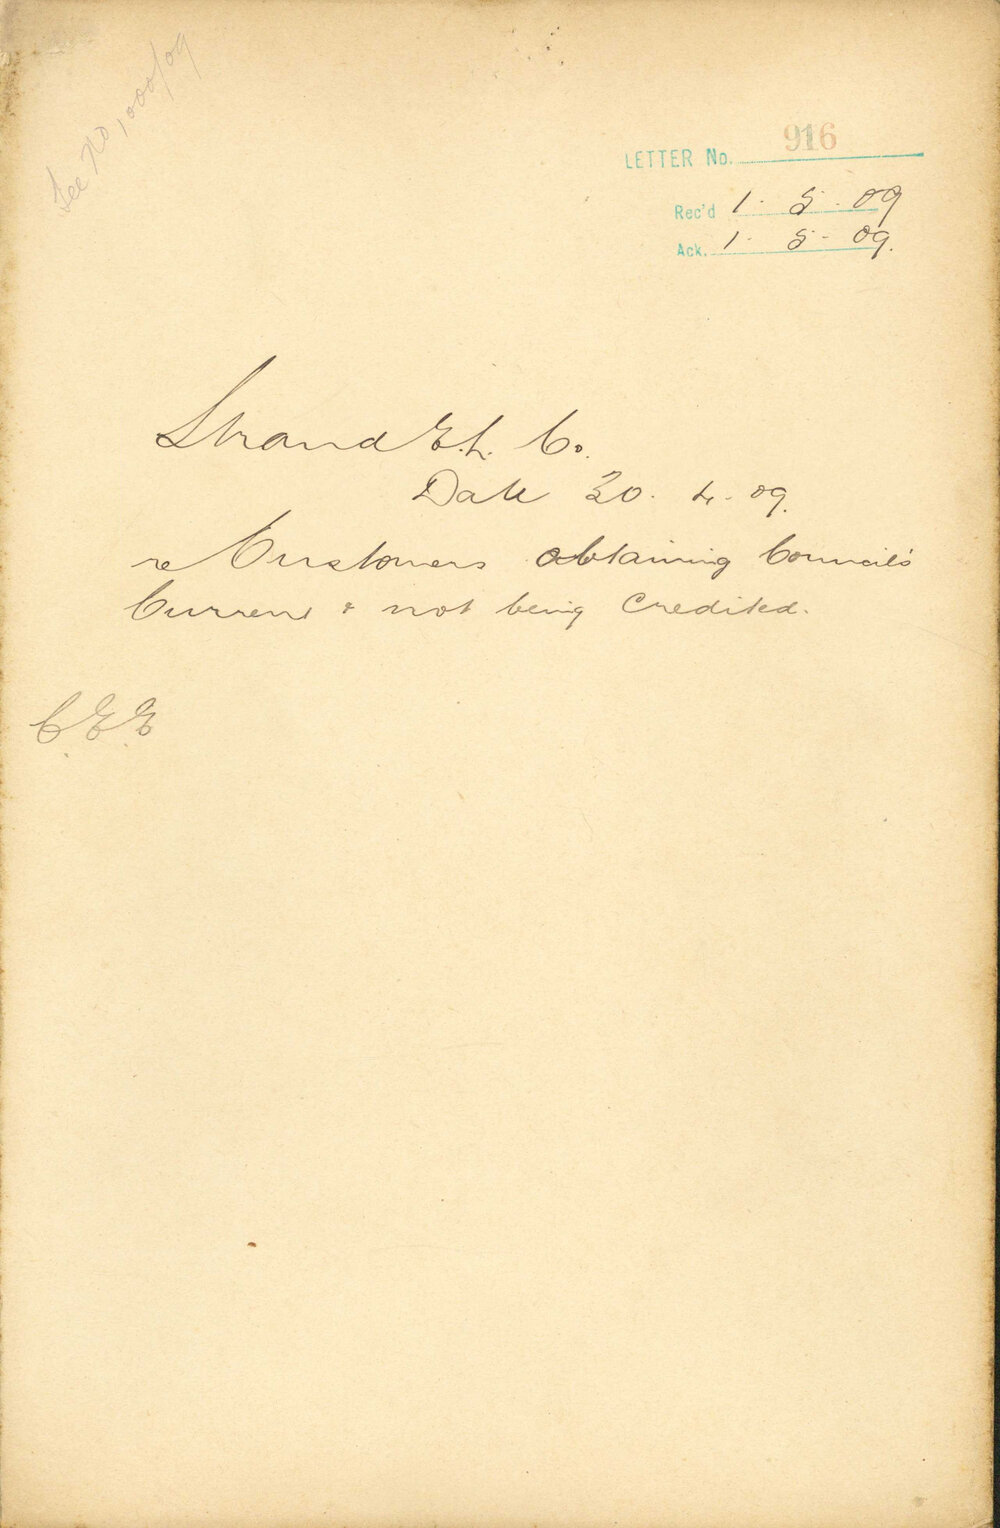 See No 1000/09
LETTER No. 916
Rec'd 1 - 5 - 09
Ack. 1 - 5 - 09.
Strand E.L. Co.
Date 30. 4. 09.
re Customers obtaining Council's
Current & not being Credited.
C.E.E